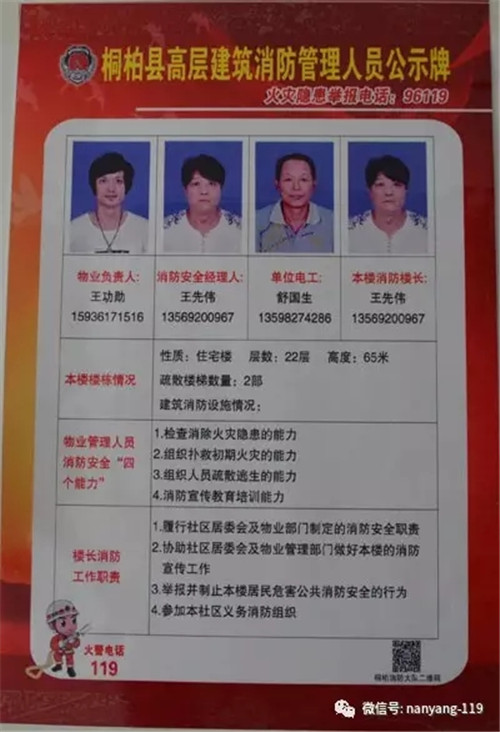 桐柏县高层建筑消防管理人员公示牌
火灾隐患举报电话：96119
物业负责人： 消防安全经理人： 单位电工： 本楼消防楼长：
王功勋 王先伟 舒国生 王先伟
15936171516 13569200967 13598274286 13569200967
本楼楼栋情况
性质：住宅楼 层数：22层 高度：65米
疏散楼梯数量：2部
建筑消防设施情况：
物业管理人员
消防安全“四
个能力”
1.检查消除火灾隐患的能力
2.组织扑救初期火灾的能力
3.组织人员疏散逃生的能力
4.消防宣传教育培训能力
楼长消防
工作职责
1.履行社区居委会及物业部门制定的消防安全职责
2.协助社区居委会及物业管理部门做好本楼的消防
宣传工作
3.举报并制止本楼居民危害公共消防安全的行为
4.参加本社区义务消防组织
火警电话
119
桐柏消防大队二维码
微信号: nanyang-119